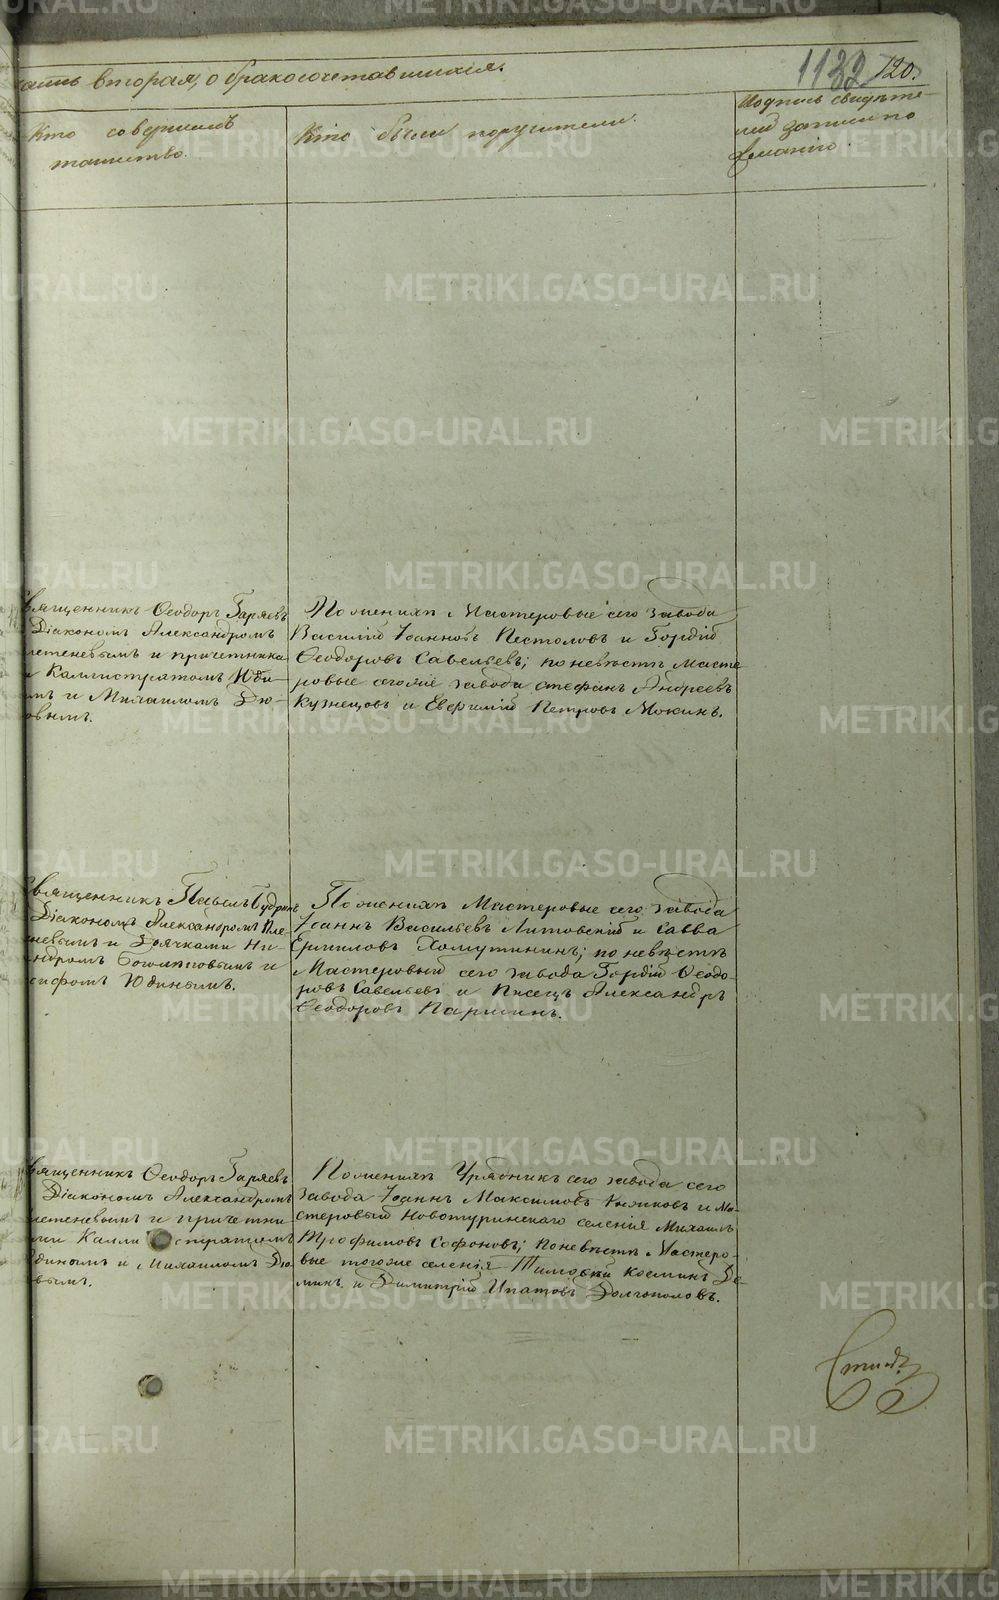 часть вторая, о бракосочетавшихся.
1133 120.
Кто совершалъ
таинство.
Кто были поручители.
Подпись свидѣте-
лей записи по
желанію.
Священникъ Ѳеодоръ Гаряевъ
Діакономъ Александромъ
и причетника
Каллистратомъ Юди-
и Михаиломъ Дю-
овымъ.
По женихѣ Мастеровые сего завода
Василій Іоанновъ Пестоловъ и Гордій
Ѳеодоровъ Савельевъ; по невѣстѣ Масте
ровые сегоже завода Стефанъ Андреевъ
Кузнецовъ и Евфимій Петровъ Мокинъ.
Священникъ Павелъ Будринъ
Діакономъ Александромъ Пле
невымъ и Дьячками Ни-
ндромъ Богомоловымъ и
сифомъ Юдинымъ.
По женихѣ Мастеровые сего завода
Іоаннъ Васильевъ Литовскій и Савва
Ермиловъ Хомутининъ; по невѣстѣ
Мастеровый сего завода Гордій Ѳеодо-
ровъ Савельевъ и Писецъ Александръ
Ѳеодоровъ Паршинъ.
Священникъ Ѳеодоръ Гаряевъ
Діакономъ Александромъ
летеневымъ и причетни-
ми Каллистратомъ
Юдинымъ и Михаиломъ Дю
овымъ.
По женихѣ Урядникъ сего завода сего
завода Іоаннъ Максимовъ и Ма-
стеровый Новотуринскаго селенія Михаилъ
Трофимовъ Софоновъ; по невѣстѣ Мастеро-
вые тогоже селенія Тимофей Косминъ Де
минъ и Димитрій Ипатовъ Долгополовъ.